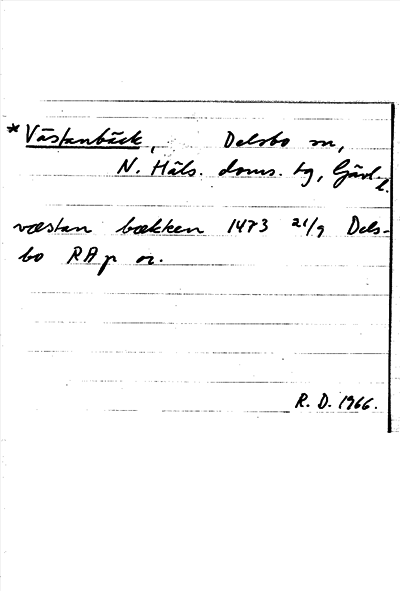 *Västanbäck, Delsbo sn,
N. Häls. doms. tg, Gävl. l.
væstan bækken 1473 21/9 Dels-
bo RAp or.
R. D. 1966.